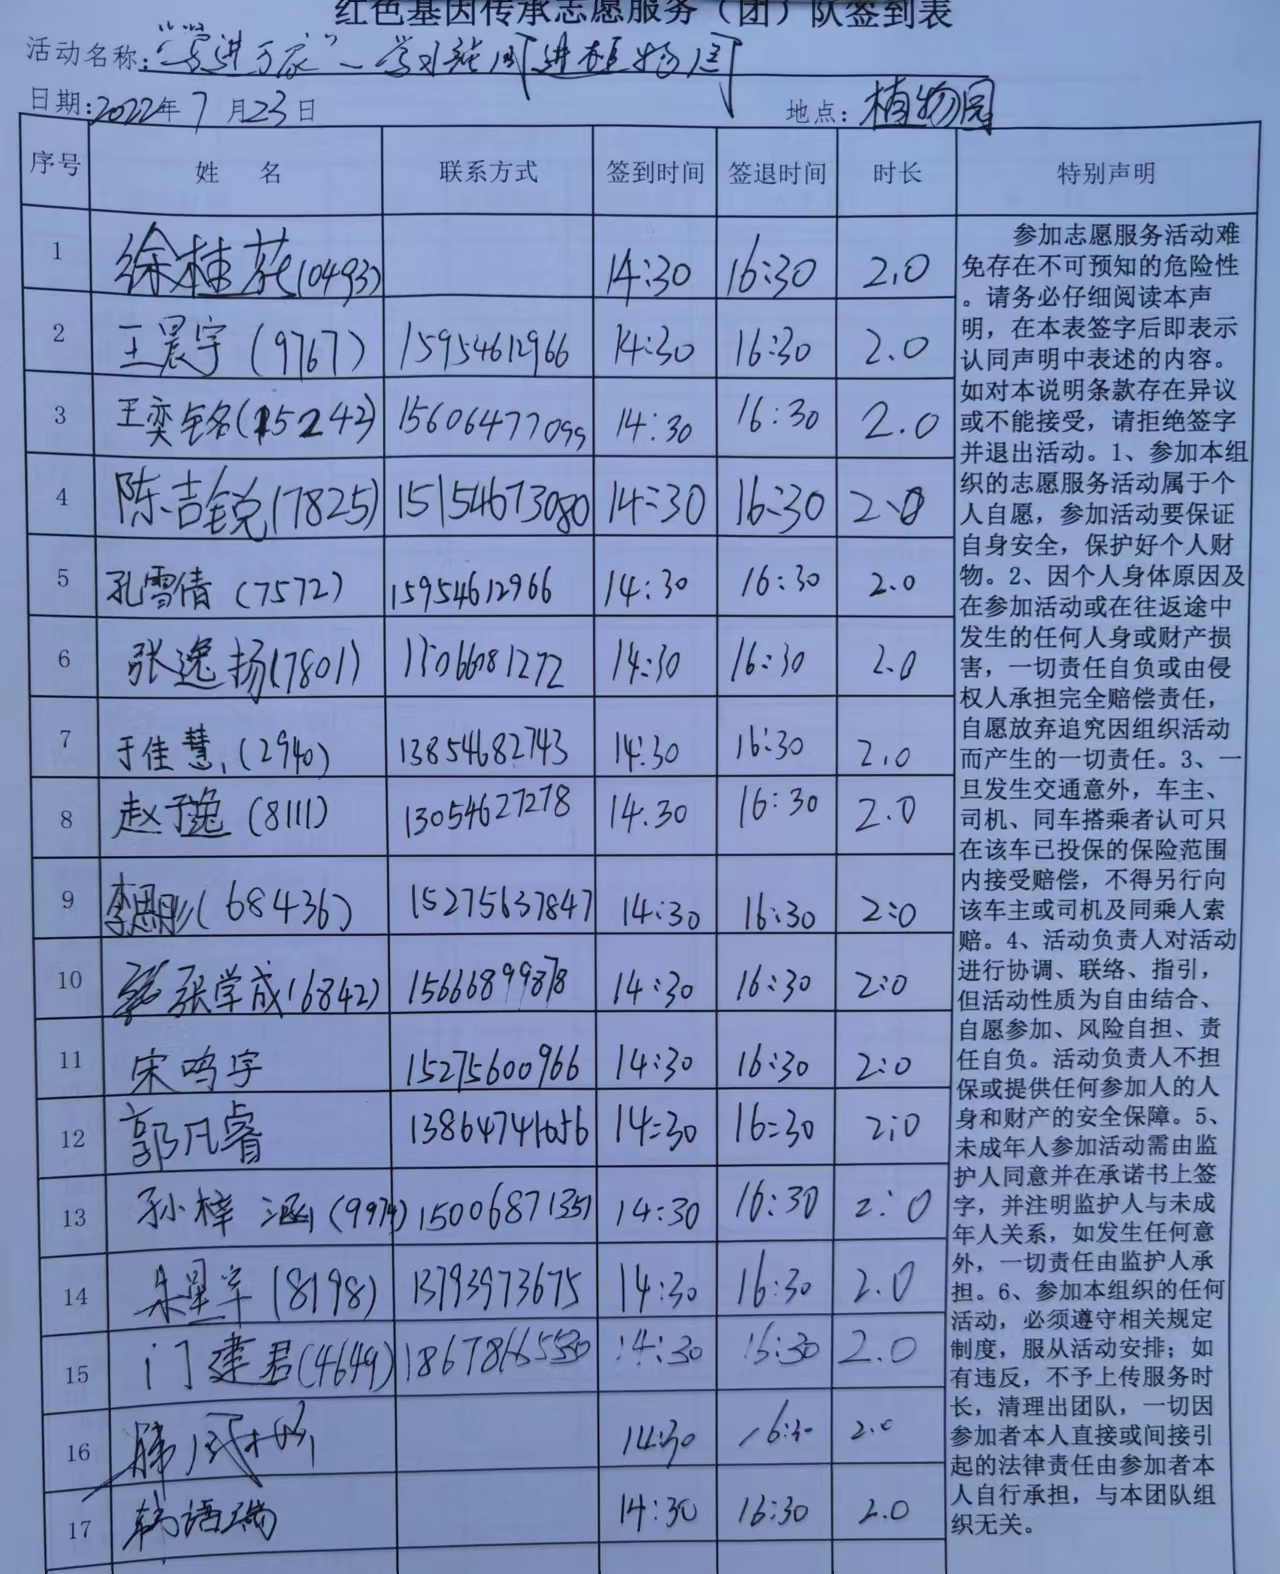 红色基因传承志愿服务（团）队签到表
活动名称:
日期:2022年7月23日 地点:植物园
序号 姓 名 联系方式 签到时间 签退时间 时长 特别声明
1 徐桂花(0493) 14:30 16:30 2.0
2 王晨宇(9767) 15954612966 14:30 16:30 2.0
3 王奕铭(15242) 15606477099 14:30 16:30 2.0
4 陈吉锐(7825) 15154673080 14:30 16:30 2.0
5 孔雪倩(7572) 15954612966 14:30 16:30 2.0
6 张逸扬(7801) 14:30 16:30 2.0
7 于佳慧(2940) 13854682743 14:30 16:30 2.0
8 赵予逸(8111) 13054627278 14.30 16:30 2.0
9 李思彤(68436) 15275637847 14:30 16:30 2:0
10 张学成(6842) 15666899878 14:30 16:30 2:0
11 宋鸣宇 15275600966 14:30 16:30 2:0
12 郭凡睿 14:30 16:30 2:0
13 孙梓涵 14:30 16:30 2:0
14 (8198) 13793973675 14:30 16:30 2.0
15 门建君(4649) 14:30 16:30 2.0
16 14:30 16:30 2.0
17 韩语瑞 14:30 16:30 2.0
参加志愿服务活动难
免存在不可预知的危险性
。请务必仔细阅读本声
明，在本表签字后即表示
认同声明中表述的内容。
如对本说明条款存在异议
或不能接受，请拒绝签字
并退出活动。1、参加本组
织的志愿服务活动属于个
人自愿，参加活动要保证
自身安全，保护好个人财
物。2、因个人身体原因及
在参加活动或在往返途中
发生的任何人身或财产损
害，一切责任自负或由侵
权人承担完全赔偿责任，
自愿放弃追究因组织活动
而产生的一切责任。3、一
旦发生交通意外，车主、
司机、同车搭乘者认可只
在该车已投保的保险范围
内接受赔偿，不得另行向
该车主或司机及同乘人索
赔。4、活动负责人对活动
进行协调、联络、指引，
但活动性质为自由结合、
自愿参加、风险自担、责
任自负。活动负责人不担
保或提供任何参加人的人
身和财产的安全保障。5、
未成年人参加活动需由监
护人同意并在承诺书上签
字，并注明监护人与未成
年人关系，如发生任何意
外，一切责任由监护人承
担。6、参加本组织的任何
活动，必须遵守相关规定
制度，服从活动安排；如
有违反，不予上传服务时
长，清理出团队，一切因
参加者本人直接或间接引
起的法律责任由参加者本
人自行承担，与本团队组
织无关。